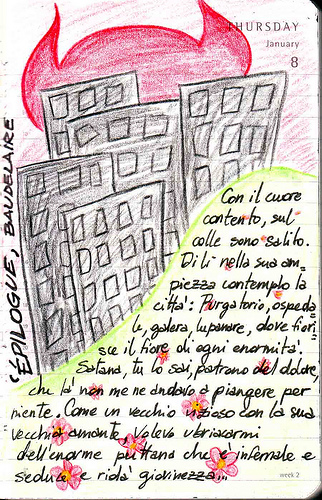 THURSDAY
January
8
"EPILOGUE, BAUDELAIRE
Con il cuore
contento, sul
colle sono salito.
Di lì nella sua am_
piezza contemplo la
città: Purgatorio, ospeda
le, galera, lupanare, dove fiori_
sce il fiore di ogni enormità.
Satana, tu lo sai, patrono del dolore,
che là non me ne andavo a piangere per
niente. Come un vecchio vizioso con la sua
vecchia amante, volevo ubriacarmi
dell'enorme puttana che è infernale e
seduce e ridà giovinezza...
week 2